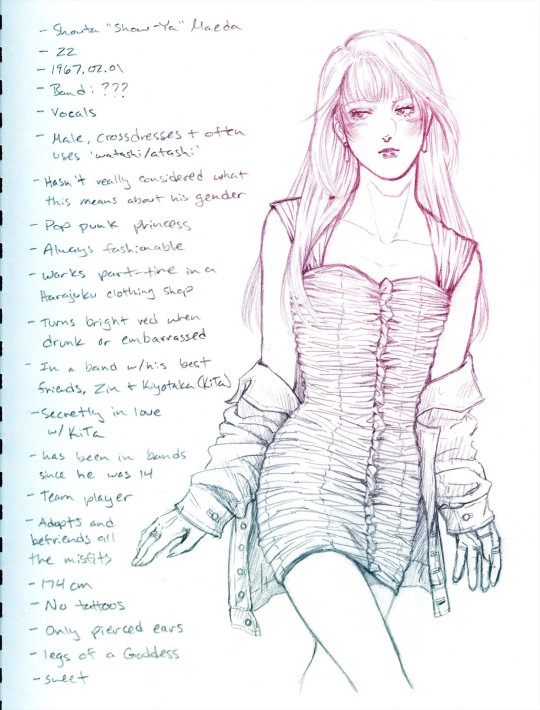 - Showta "Show-Ya" Maeda
- 22
- 1967.02.01
- Band: ???
- Vocals
- Male, crossdresses + often
uses 'watashi/atashi'
- Hasn't really considered what
this means about his gender
- Pop punk princess
- Always fashionable
- Works part-time in a
Harajuku clothing shop
- Turns bright red when
drunk or embarrassed
- In a band w/his best
friends, Zin + Kiyotaka (KiTa)
- Secretly in love
w/ KiTa
- has been in bands
since he was 14
- Team player
- Adopts and
befriends all
the misfits
- 174 cm
- No tattoos
- Only pierced ears
- legs of a Goddess
- sweet